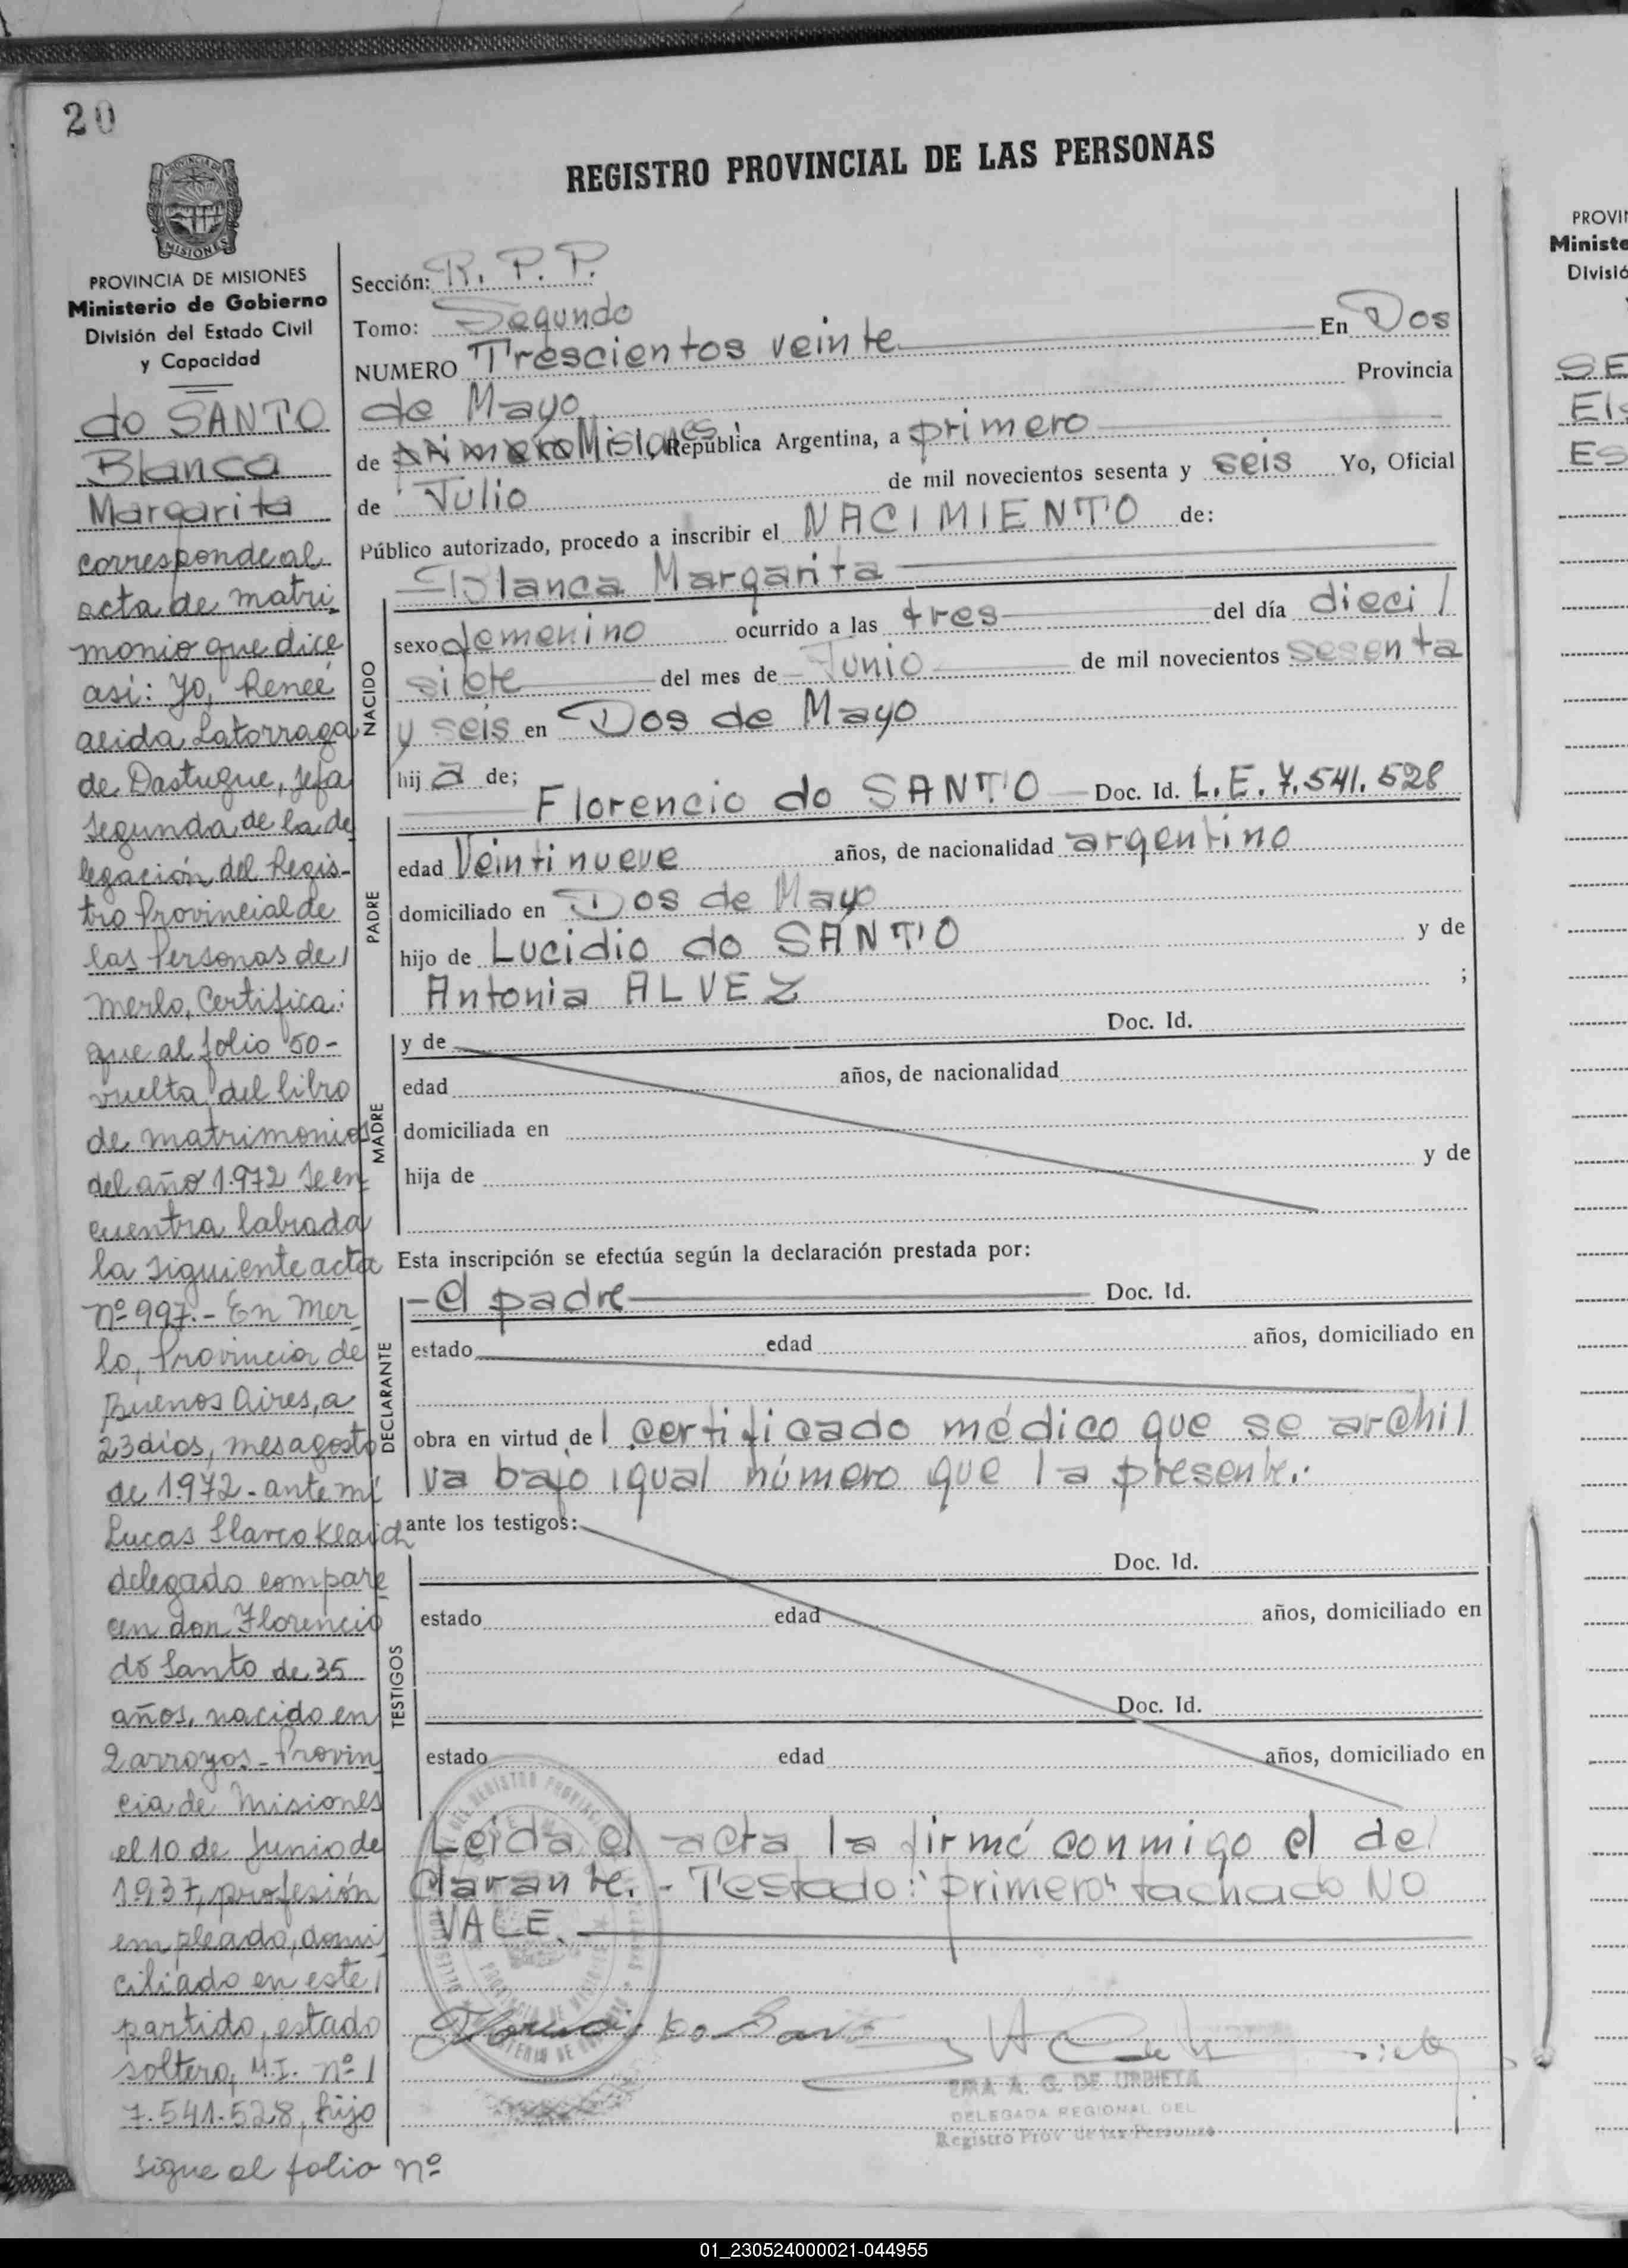 20
REGISTRO PROVINCIAL DE LAS PERSONAS
PROVINCIA DE MISIONES
Ministerio de Gobierno
División del Estado Civil
y Capacidad
do SANTO
Blanca
Margarita
corresponde al
acta de matri
monio que dice
así: Yo, Reneé
Alida Latorraga
de Dastugue, Jefa
Segunda de la de
legación del Regis-
tro Provincial de
las Personas de /
Merlo, Certifica:
que al folio 50-
vuelta del libro
de matrimonios
del año 1.972 se en
cuentra labrada
la siguiente acta
nº 997.- En Mer
lo, Provincia de
Buenos Aires, a
23 días, mes agosto
de 1.972 - ante mí
Lucas
delegado compare
cen don Florencio
do Santo de 35
años, nacido en
2 arroyos - Provin
cia de Misiones
el 10 de Junio de
1.937, profesión
empleado, domi
ciliado en este /
partido, estado
soltero, M.I. nº /
7.541.528, hijo
sigue al folio nº
Sección: R. P. P.
Tomo: Segundo
NUMERO Trescientos veinte En Dos
de Mayo Provincia
de primero Misiones, República Argentina, a primero
de Julio de mil novecientos sesenta y seis Yo, Oficial
Público autorizado, procedo a inscribir el NACIMIENTO de:
Blanca Margarita
NACIDO
sexo femenino ocurrido a las tres del día dieci /
siete del mes de Junio de mil novecientos sesenta
y seis en Dos de Mayo
hij a de;
Florencio do SANTO Doc. Id. L.E. 7.541.528
PADRE
edad Veintinueve años, de nacionalidad argentino
domiciliado en Dos de Mayo
hijo de Lucidio do SANTO y de
Antonia ALVEZ ;
MADRE
y de Doc. Id.
edad años, de nacionalidad
domiciliada en
hija de y de
Esta inscripción se efectúa según la declaración prestada por:
DECLARANTE
- el padre Doc. Id.
estado edad años, domiciliado en
obra en virtud de l certificado médico que se archi/
va bajo igual número que la presente.-
ante los testigos:
TESTIGOS
Doc. Id.
estado edad años, domiciliado en
Doc. Id.
estado edad años, domiciliado en
Leida el acta la firmó conmigo el de/
clarante.- Testado: "primero" tachado NO
VALE.
Florencio do Santo
EMA A. G. DE URBIETA
DELEGADA REGIONAL DEL
Registro Prov. de las Personas
PROVIN
Ministe
Divisió
SE
El
ES
01_230524000021-044955